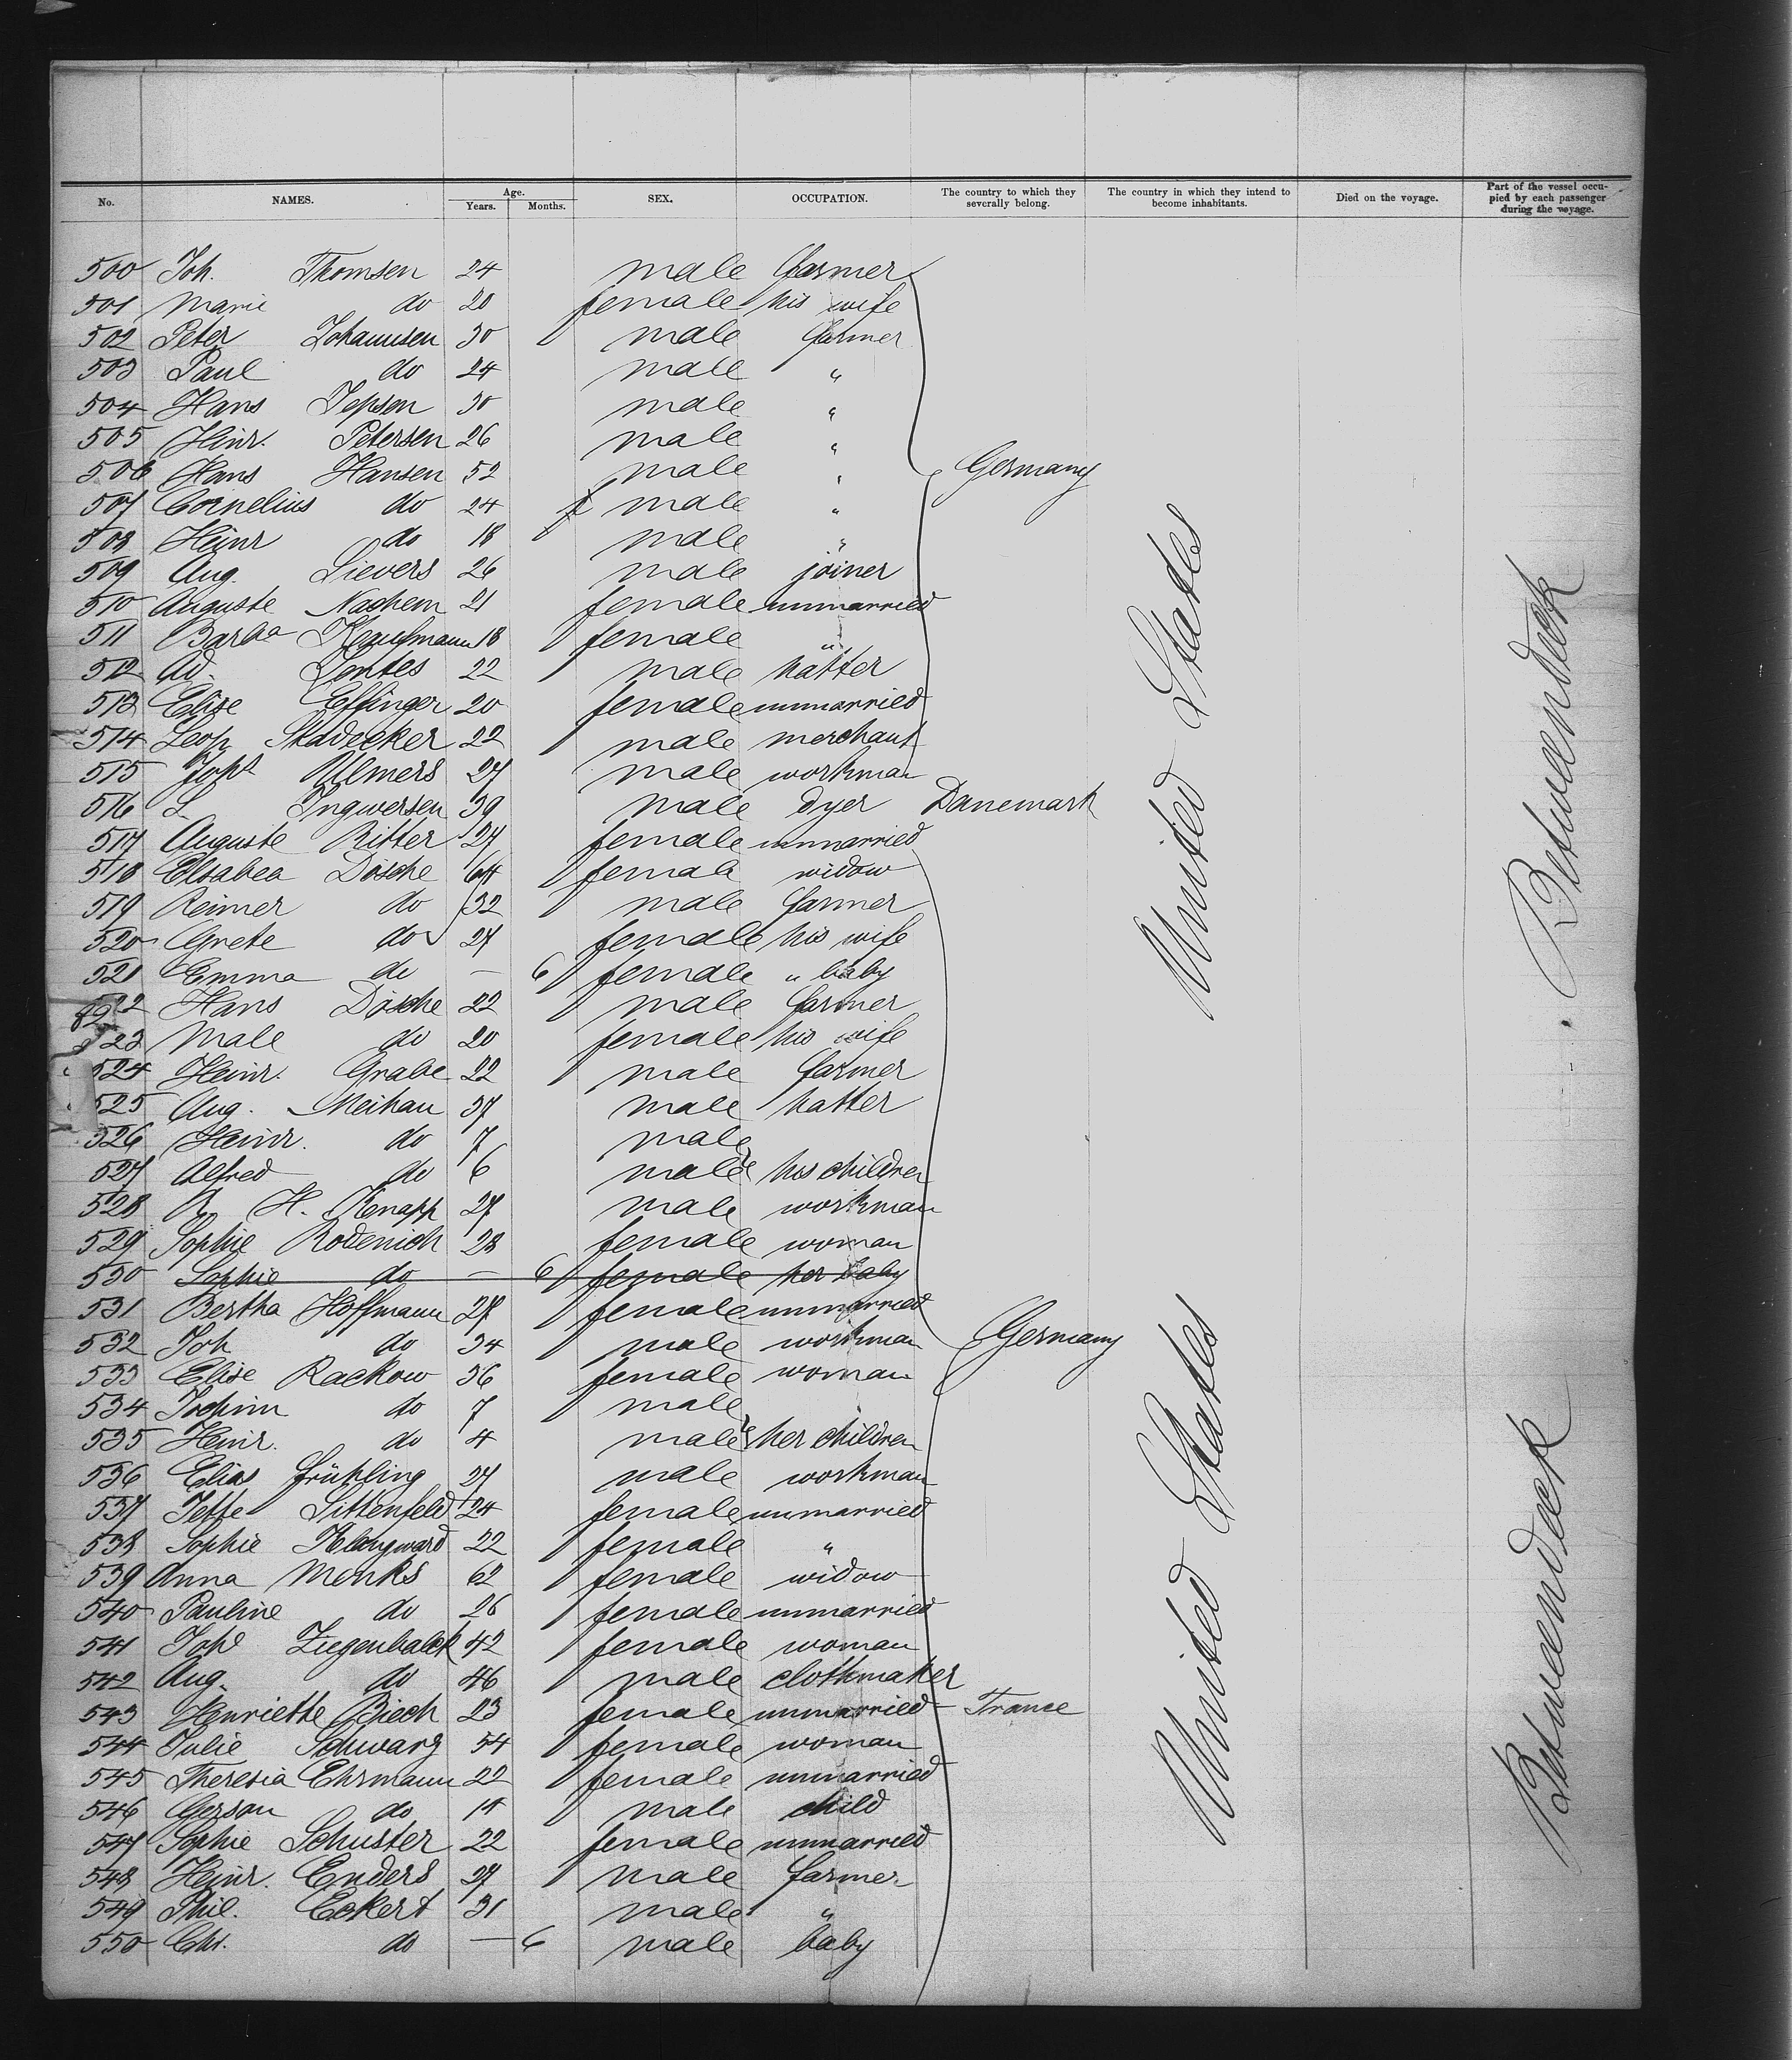 No. NAMES. Age. Years. Months. SEX. OCCUPATION. The country to which they severally belong. The country in which they intend to become inhabitants. Died on the voyage. Part of the vessel occupied by each passenger during the voyage.
500 Joh. Thomsen 24 male farmer
501 Marie do 20 female his wife
502 Peter Johannsen 30 male farmer
503 Paul do 24 male "
504 Hans Jepsen 30 male "
505 Heinr. Petersen 26 male "
506 Hans Hansen 52 male " Germany
507 Cornelius do 24 male "
508 Heinr do 18 male "
509 Aug. Sievers 26 male joiner
510 Auguste Nachem 21 female unmarried
511 Barba Kaufmann 18 female "
512 Ad. Lontes 22 male hatter
513 Elise Effinger 20 female unmarried
514 Leop Stadecker 22 male merchant
515 Johs Ulmers 27 male workman
516 L. Ingwersen 39 male dyer Danemark
517 Auguste Ritter 27 female unmarried
518 Elsabea Dösche 64 female widow
519 Reimer do 32 male farmer
520 Grete do 27 female his wife
521 Emma do — 6 female " baby
522 Hans Dösche 22 male farmer
523 Male do 20 female his wife
524 Heinr. Grabe 22 male farmer
525 Aug. Meihau 37 male hatter
526 Heinr. do 7 male
527 Alfred do 6 male his children
528 R H. Knapp 27 male workman
529 Sophie Rodenich 28 female woman
530 Sophie do — 6 female her baby
531 Bertha Hoffmann 27 female unmarried
532 Joh do 34 male workman Germany
533 Elise Rackow 36 female woman
534 Jochim do 7 male
535 Heinr. do 4 male her children
536 Elias Frühling 27 male workman
537 Jette Sittenfeld 24 female unmarried
538 Sophie Klangward 22 female "
539 Anna Monks 62 female widow
540 Pauline do 26 female unmarried
541 Johe Ziegenbalck 42 female woman
542 Aug. do 46 male clothmaker
543 Henriette Biech 23 female unmarried France
544 Julie Schwarz 54 female woman
545 Theresia Ehrmann 22 female unmarried
546 Gerson do 11 male child
547 Sophie Schuster 22 female unmarried
548 Heinr. Enders 27 male farmer
549 Phil. Eckert 31 male "
550 Chr. do — 6 male baby
United States
United States
Betweendeck
Betweendeck